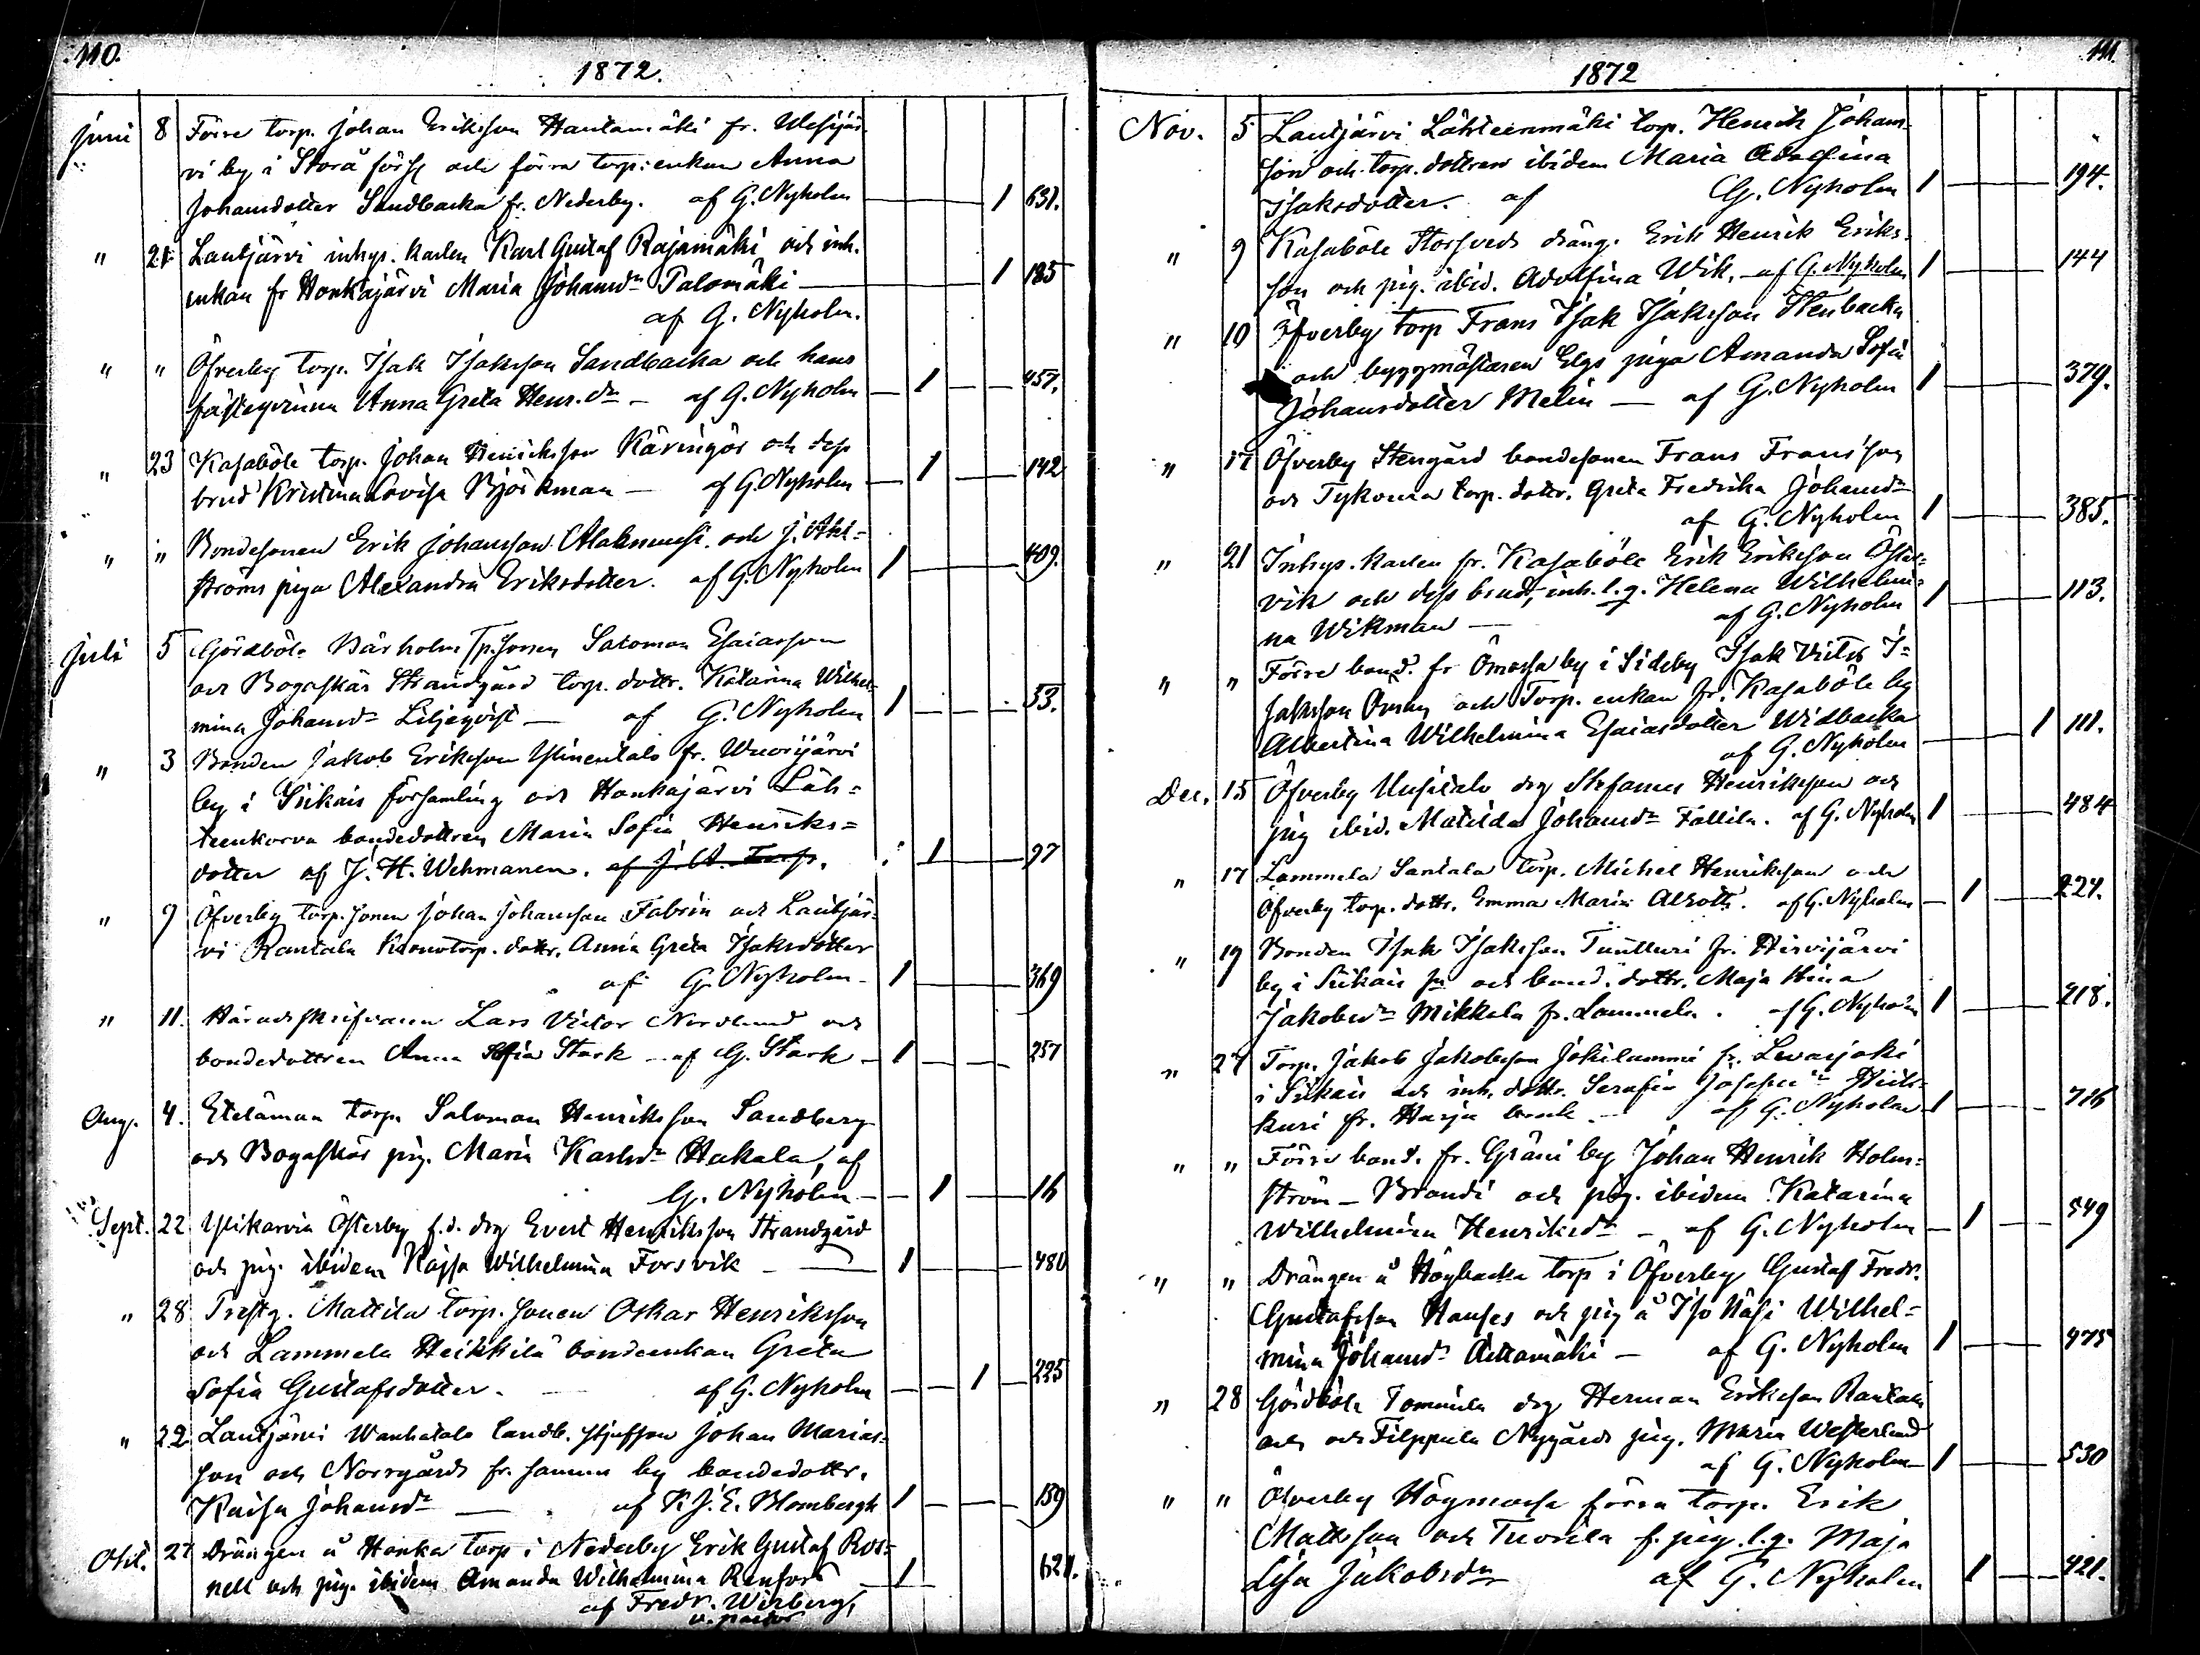 110.
1872.
Juni 8 Förre torp. Johan Eriksson Hautamäki fr. Wesijär-
vi by i Storå förs. och förra torp:enkan Anna
Johansdotter Sandbacka fr. Nederby. af G. Nyholm 1 631.
" 21 Lautjärvi inhys. karlen Karl Gustaf Rajamäki och inh.
enkan fr Honkajärvi Maria Johansdr Palomäki 1 185
af G. Nyholm.
" " Öfverby torp. Isak Isaksson Sandbacka och hans
fästeqvinna Anna Greta Henr.dr af G. Nyholm 1 457.
" 23 Kasaböle torp. Johan Henriksson Käringös och dess
brud Kristina Lovisa Björkman af G. Nyholm 1 142
" " Bondesonen Erik Johansson och J. Ahl-
ströms piga Alexandra Eriksdotter. af G. Nyholm 1 409.
Juli 5 Gördböle Bärholm Tp.sonen Salomon Esaiasson
och Bogaskär Strandgård torp. dottr. Katarina Wilhel-
mina Johansdr Liljeqvist af G. Nyholm 1 53.
" 3 Bonden Jakob Eriksson Ylinentalo fr. Wuorijärvi
by i Siikais församling och Honkajärvi Läh-
teenkorva bondedottren Maria Sofia Henriks-
dotter af J. H. Wehmanen. 1 97
" 9 Öfverby torp.sonen Johan Johansson Fabrin och Lautjär-
vi Rantala Kronotorp. dottr. Anna Greta Isaksdotter
af G. Nyholm 1 369
" 11. Häradsskrifvaren Lars Victor Nordlund och
bondedottren Anna Sofia Stark af G. Stark 1 257
Aug. 4. Etelämaa torp. Salomon Henriksson Sandberg
och Bogaskär pig. Maria Karlsdr Hakala, af
G. Nyholm 1 16
Sept. 22 Ylikarvia Österby f.d. drg Evert Henriksson Strandgård
och pig. ibidem Kajsa Wilhelmina Forsvik 1 480
" 28 Prestg. Mattila torp.sonen Oskar Henriksson
och Lammela Heikkilä bondeenkan Greta
Sofia Gustafsdotter. af G. Nyholm 1 225
" 22 Lautjärvi Wanhatalo landb. styfson Johan Marias-
son och Norrgårds fr. samma by bondedottr.
Kaisa Johansdr af K J. E. Blombergh 1 159
Okt. 27 Drängen å Hanka torp i Nederby Erik Gustaf Ros-
nell och pig. ibidem Amanda Wilhelmina Renfors 1 621.
af Fredr. Wirberg,
v. pastor
111.
1872
Nov. 5 Lautjärvi Lähteenmäki torp. Henrik Johans-
son och torp. dottren ibidem Maria Adolfina
Isaksdotter. af G. Nyholm 1 194.
" 9 Kasaböle Storsveds dräng. Erik Henrik Eriks-
son och pig. ibid. Adolfina Wik. af G. Nyholm 1 144
" 10 Öfverby torp Frans Isak Isaksson Stenbacka
och byggmästaren Elgs piga Amanda Sofia
Johansdotter Melin af G. Nyholm 1 379.
" 17 Öfverby Stengård bondesonen Frans Fransson
och torp. dottr. Greta Fredrika Johansdr
af G. Nyholm 1 385.
" 21 Inhys. karlen fr. Kasaböle Erik Eriksson Öster-
vik och dess brud, inh. l.q. Helena Wilhelmi-
na Wikman af G. Nyholm 1 113.
" " Förre bond. fr Ömossa by i Sideby Isak Victor I-
saksson och Torp. enkan fr. Kasaböle by
Albertina Wilhelmina Esaiasdotter Widbacka 1 111.
af G. Nyholm
Dec. 15 Öfverby Uusitalo drg Stefanus Henriksson och
pig ibid. Matilda Johansdr Fallila. af G. Nyholm 1 484
" 17 Lammela Santala torp. Michel Henriksson och
Öfverby torp. dottr. Emma Maria af G. Nyholm 1 224.
" 19 Bonden Isak Isaksson Tuulluri fr. Hirvijärvi
by i Siikais sn och bond. dottr. Maja Stina
Jakobsdr Mikkola fr. Lammela. af G. Nyholm 1 218.
" 27 Torp. Jakob Jakobsson Jokilammi fr. Leväsjoki
i Siikais och inh. dottr. Serafia Josefsdr
fr. Harja af G. Nyholm 1 716
" " Förre bond. fr. Gräni by Johan Henrik Holm-
ström Brandi och pig. ibidem Katarina
Wilhelmina Henriksdr af G. Nyholm 1 549
" " Drängen å Högbacka torp i Öfverby Gustaf Fredr.
Gustafsson Hanses och pig å Iso Näsi Wilhel-
mina Johansdr Aittamäki af G. Nyholm 1 475
" 28 Gördböle Tommila drg Herman Eriksson Rantala
och och Filppula Nygårds pig. Maria Westerlund
af G. Nyholm 1 530
" " Öfverby Högmossa förra torp. Erik
Mattsson och Tuorila f. pig. l.q. Maja
Lisa Jakobsdr af G. Nyholm 1 421.